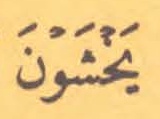 يَخْشَوْنَ